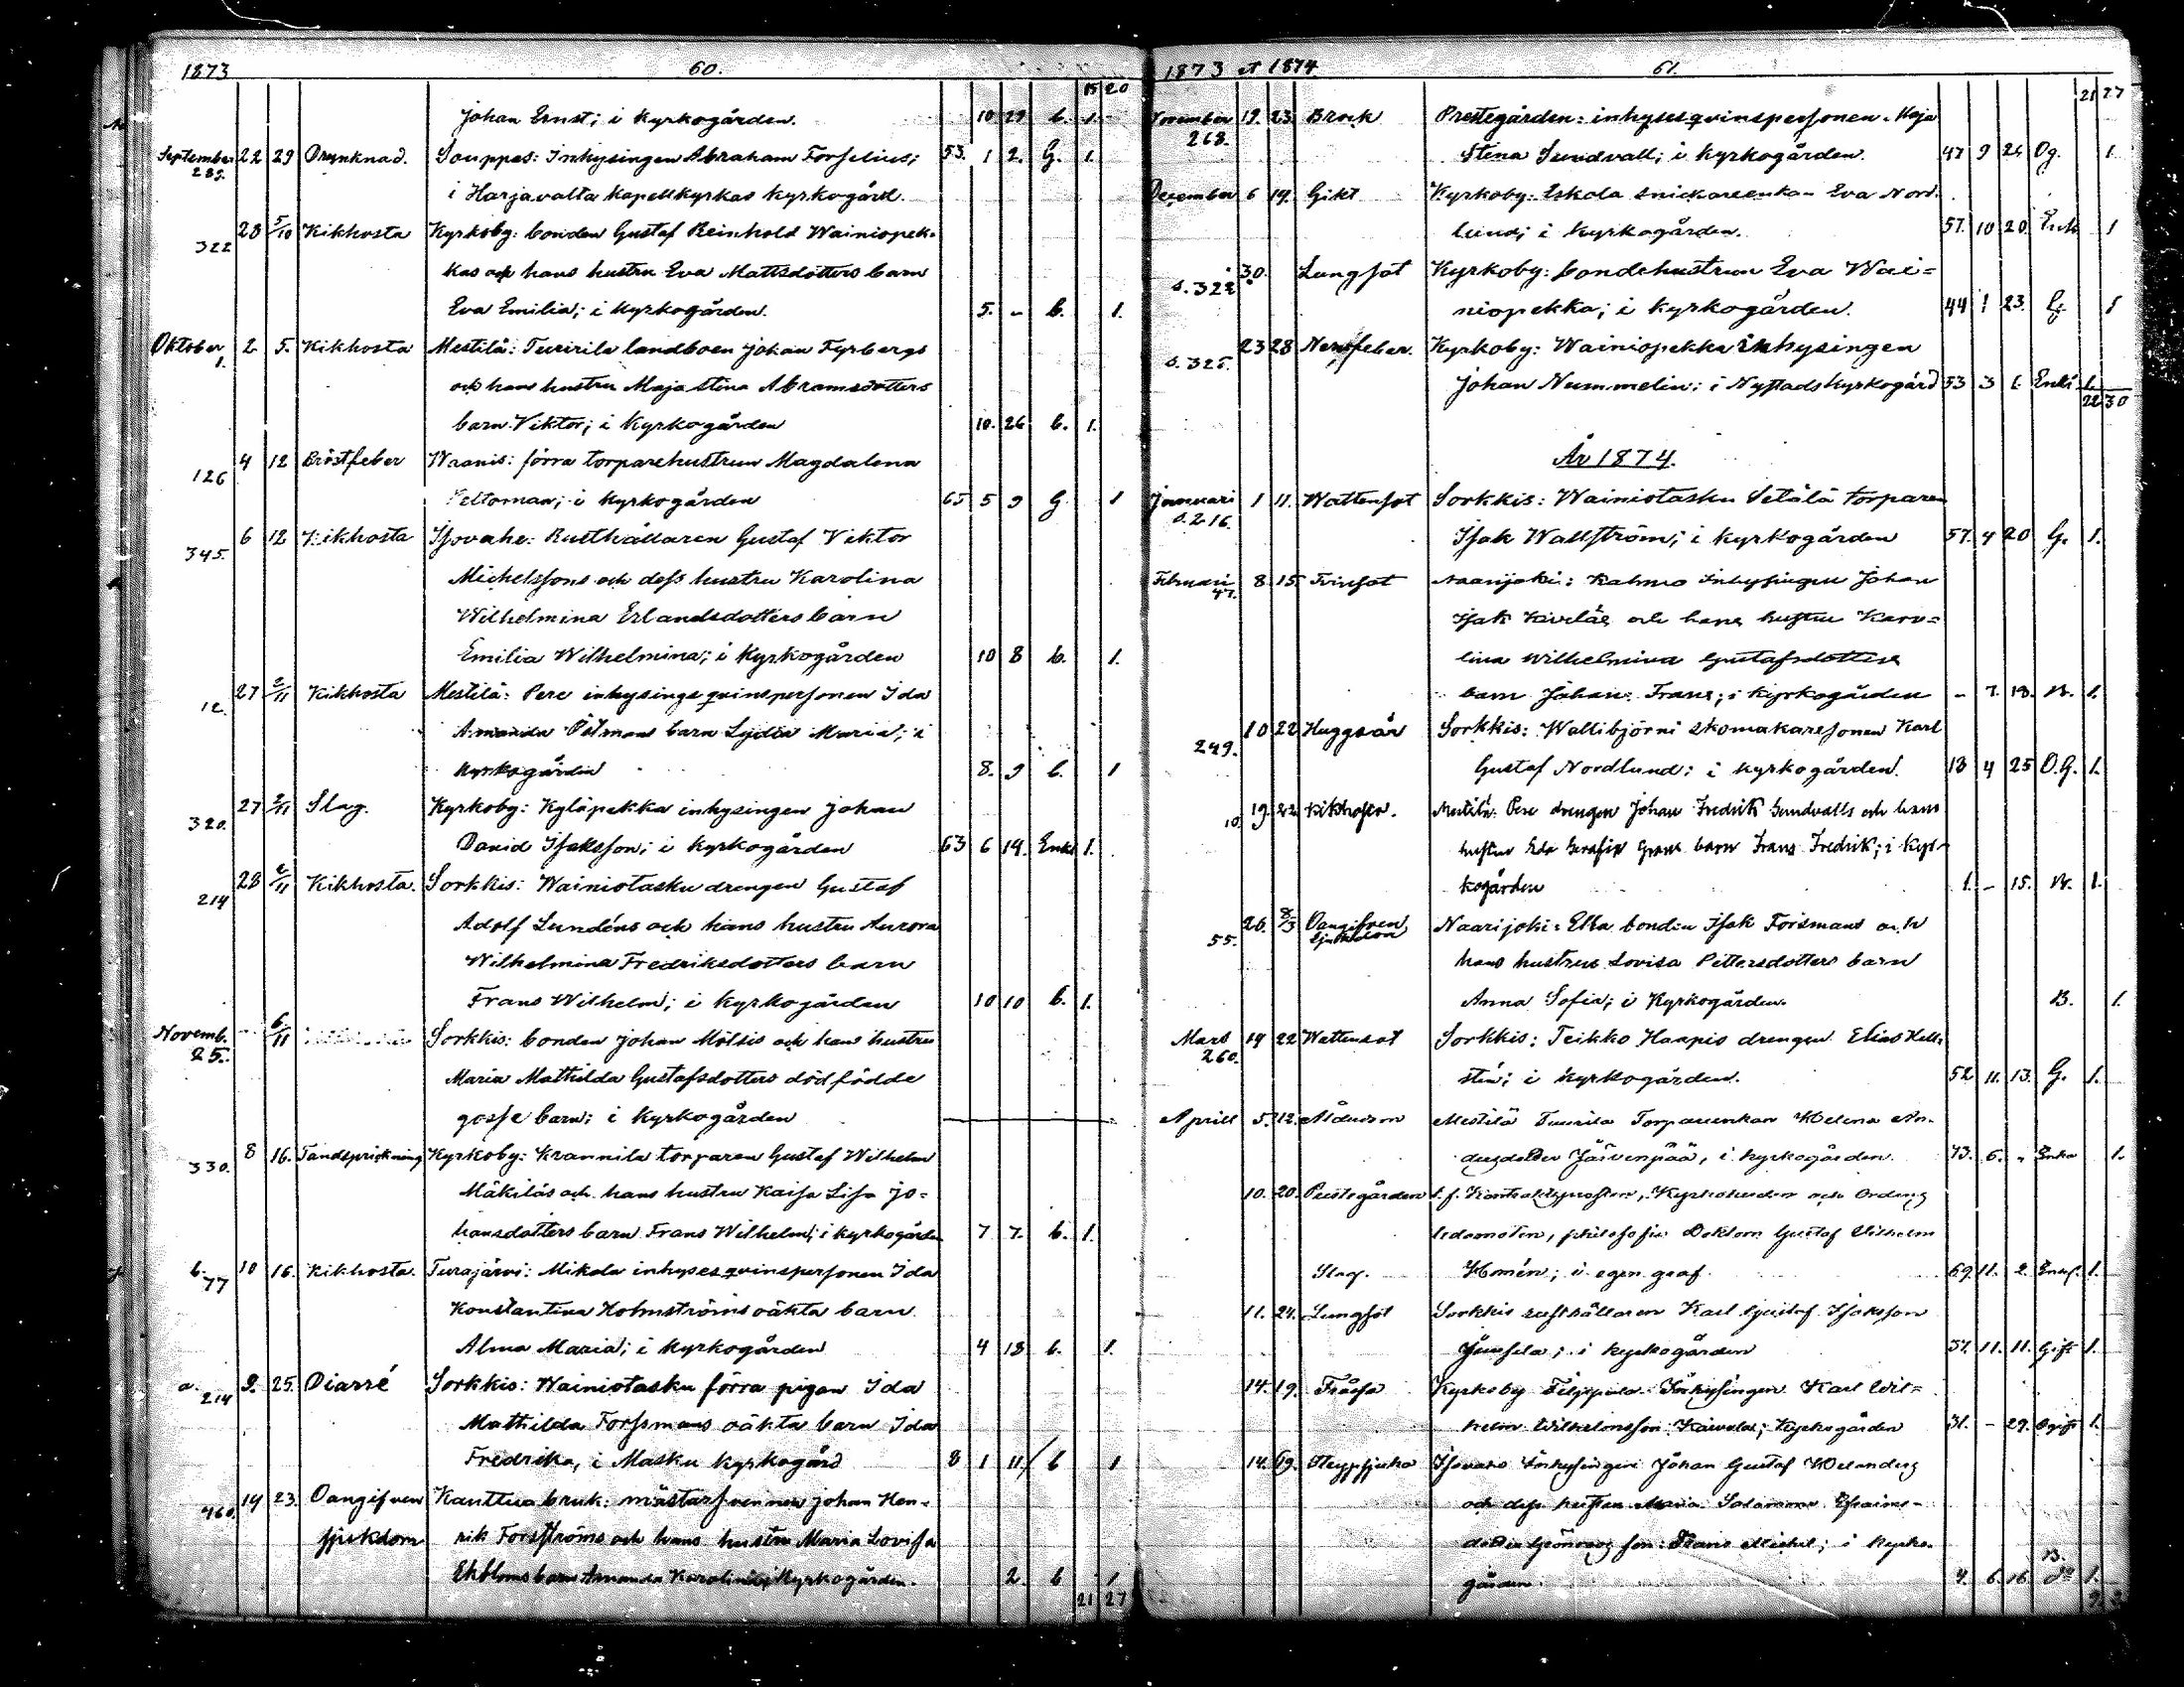 1873 60.
15 20
Johan Ernst; i Kyrkogården. 10 29 b. 1.
September 22 29 Drunknad. Souppas: Inhysingen Abraham Forselius; 53. 1 2. G. 1.
i Harjavalta Kapellkyrkas Kyrkogård.
322 28 5/10 Kikhosta Kyrkoby: bonden Gustaf Reinhold Wainiopek-
kas och hans hustru Eva Mattsdotters barn
Eva Emilia; i Kyrkogården. 5. - b. 1.
Oktober 1. 2. 5. Kikhosta Mestilä: Tuirila landboen Johan Fyrbergs
och hans hustru Maja Stina Abramsdotters
barn Viktor; i Kyrkogården 10. 26 b. 1.
126 4 12 Bröstfeber Waanis: förra torparehustrun Magdalena
Peltoman; i Kyrkogården 65 5 9 G 1
345. 6 12 Kikhosta Isovahe: Rusthållaren Gustaf Viktor
Michelssons och dess hustru Karolina
Wilhelmina Erlandsdotters barn
Emilia Wilhelmina; i Kyrkogården 10 8 b. 1.
12. 27 2/11 Kikhosta Mestilä: Pere inhysings qvinspersonen Ida
Amanda Östmans barn Lydia Maria; i
Kyrkogården 8. 9 b. 1
320. 27 2/11 Slag. Kyrkoby: Kyläpekka inhysingen Johan
David Isaksson; i Kyrkogården 63 6 19. Enkl 1.
214 28 2/11 Kikhosta. Sorkkis: Wainiotasku drengen Gustaf
Adolf Lundéns och hans hustru Aurora
Wilhelmina Fredriksdotters barn
Frans Wilhelm; i Kyrkogården 10 10 b. 1.
Novemb. 25. 6/11 Sorkkis: bonden Johan Mölsis och hans hustru
Maria Mathilda Gustafsdotters dödfödde
gosse barn; i Kyrkogården
330. 8 16. Tandsprickning Kyrkoby: Krannila torparen Gustaf Wilhelm
Mäkiläs och hans hustru Kaisa Lisa Jo-
hansdotters barn Frans Wilhelm; i Kyrkogården 7 7. b. 1.
b. 77 10 16. Kikhosta. Turajärvi: Mikola inhyses qvinspersonen Ida
Konstantina Holmströms oäkta barn
Alma Maria; i Kyrkogården 4 13 b. 1.
a. 214 9. 25. Diarré Sorkkis: Wainiotasku förra pigan Ida
Mathilda Forssmans oäkta barn Ida
Fredrika, i Masku Kyrkogård 8 1 11 b 1
460. 14 23. Oangifven Kauttua bruk: mästarsvennen Johan Hen-
sjukdom rik Forsströms och hans hustru Maria Lovisa
Ekbloms barn Amanda Karolina; i Kyrkogården. 2. b 1
21 27
1873 et 1874. 61.
21 27
November 268. 19. 23. Brock Prestegården: inhyses qvinspersonen Maja
Stina Sundvall; i Kyrkogården. 47 9 24 Og. 1.
December 6 14. Gikt Kyrkoby: Eskola snickareenkan Eva Nord-
lund; i Kyrkogården. 57. 10 20. Enk 1
s. 322 30. Lungsot Kyrkoby: bondehustrun Eva Wai=
niopekka; i Kyrkogården. 44 1 23. G. 1
s. 325. 23 28 Nervfeber. Kyrkoby: Wainiopekka inhysingen
Johan Nummelin; i Nystads Kyrkogård 53 3 Enkl 1.
22 30
År 1874.
Januari s. 216. 1 11. Wattensot Sorkkis: Wainiotasku Setälä torparen
Isak Wallström; i Kyrkogården 57. 4 20 G. 1.
Februari 47. 8. 15. Tvinsot Naarijoki: Inhysingen Johan
Isak Kiviläs och hans hustru Karo=
lina Wilhelmina Gustafsdotters
barn Johan Frans; i Kyrkogården - 7. 13. B. 1.
249. 10 22 Huggsår Sorkkis: Wallibjörni skomakaresonen Karl
Gustaf Nordlund; i Kyrkogården. 18 4 25 O.G. 1.
10. 19. 22 Kikhosta. Mestilä: Pere drengen Johan Fredrik Sundvalls och hans
hustru Eda Serafia barn Frans Fredrik; i Kyr-
kogården 1. - 15. B. 1.
55. 26. 8/3 Oangifven sjukdom Naarijoki: Elba bonden Isak Forsmans och
hans hustrus Lovisa Pettersdotters barn
Anna Sofia; i Kyrkogården. B. 1.
Mars 260. 14 22 Wattensot Sorkkis: Teikko Haapio drengen Elias Hell-
stén; i Kyrkogården. 52 11. 13. G. 1.
Aprill 5. 12. Ålderdom Mestilä Tuurila Torpareenkan Helena An-
dersdotter Järvenpää, i Kyrkogården. 73. 6. - Enka 1.
10. 20. Prestegården t.f. Kontraktsprosten, Kyrkoherden och Ordens
ledamoten, philosofie Doktorn Gustaf Wilhelm
Slag. Homén; i egen graf. 69. 11. 2. 1.
11. 24. Lungsot Sorkkis rusthållaren Karl Gustaf Isaksson
i Kyrkogården 57. 11. 11. Gift 1.
14. 19. Frossa Kyrkoby Filppula Inhysingen Karl Wil=
helm Wilhelmsson Kyrkogården 31. - 29. Ogift 1.
14. 19. Strypsjuka Isovahe Inhysingen Johan Gustaf Welanders
och dess hustru Maria Efraims-
dotter Grönroos son Frans Michel; i Kyrko-
gården. 4. 6. 16. B. 1.